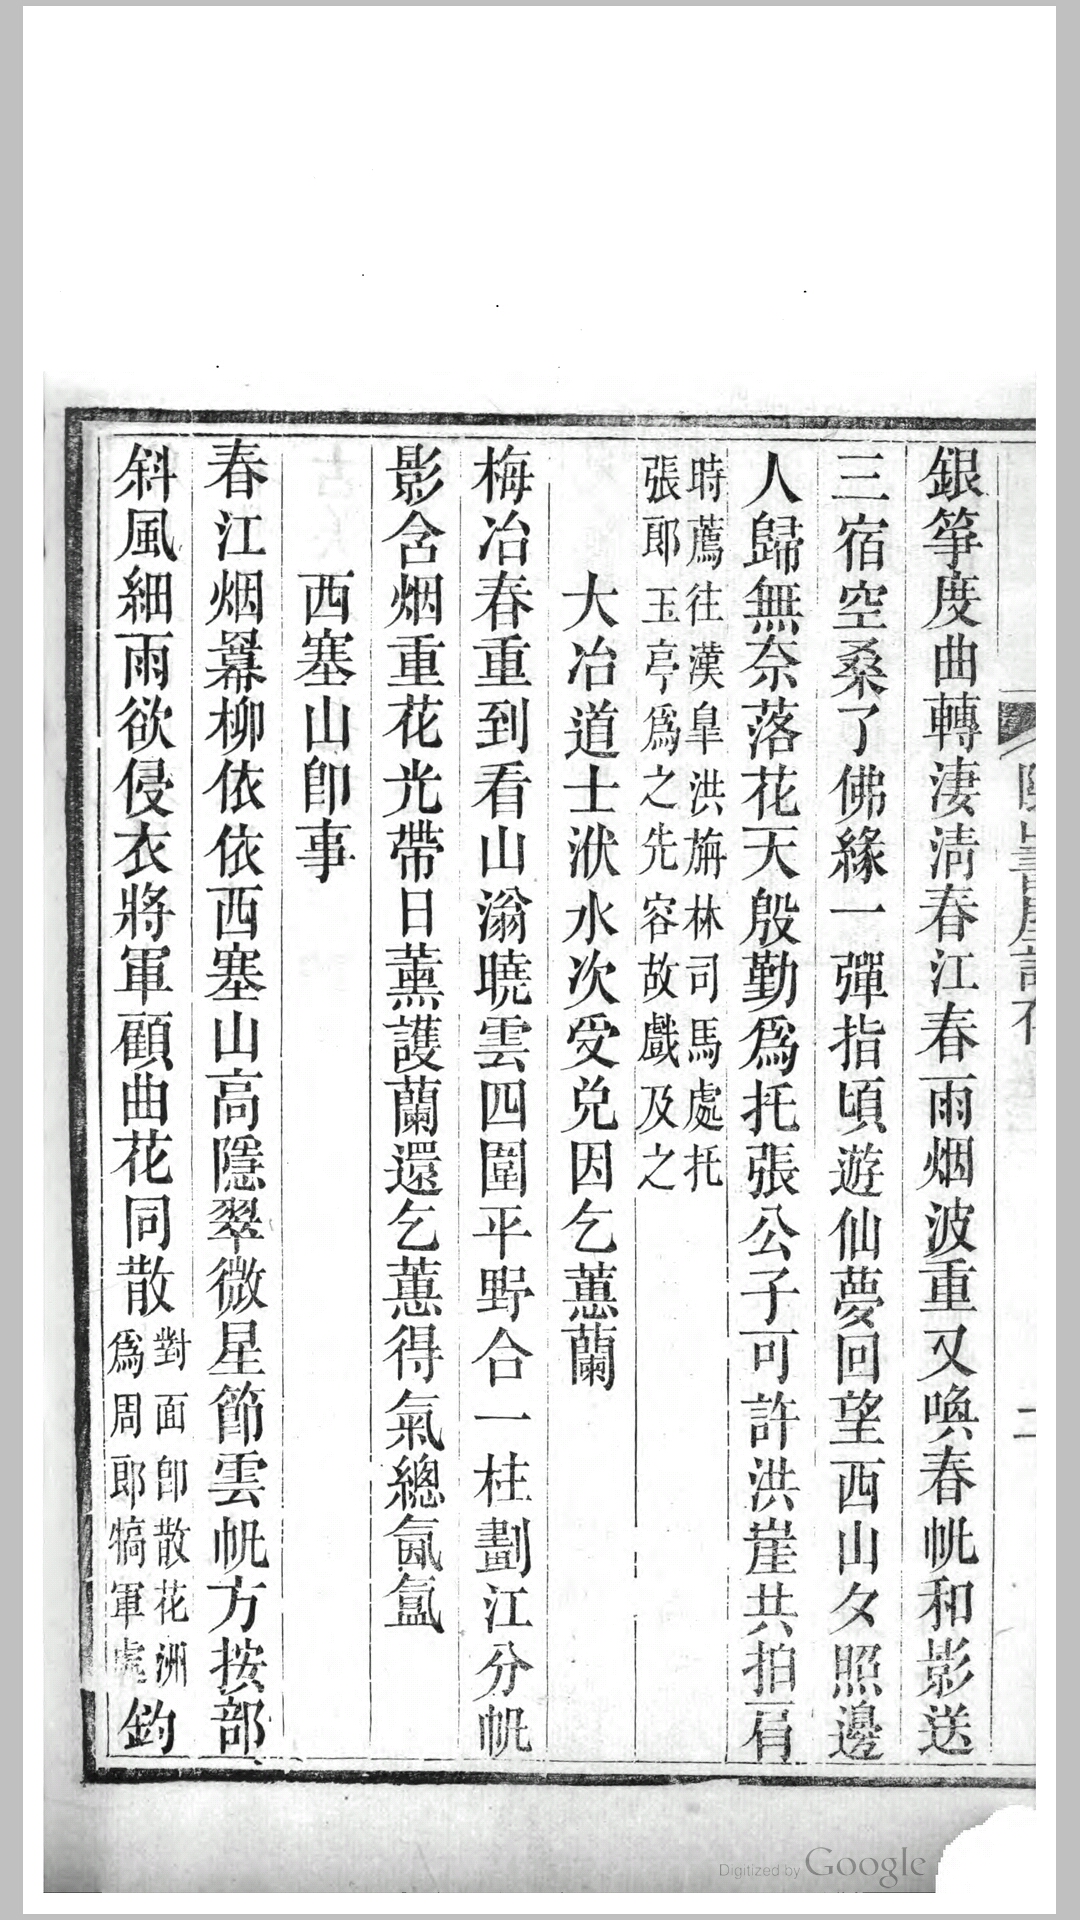 銀箏度曲轉淒清春江春雨烟波重又喚春帆和影送
三宿空桑了佛緣一彈指頃遊仙夢回望西山夕照邊
人歸無奈落花天殷勤爲托張公子可許洪崖共拍肩
時薦往漢皐洪旃林司馬處托
張郎玉亭爲之先容故戲及之
大冶道士洑水次受兌因乞蕙蘭
梅冶春重到看山滃曉雲四圍平野合一柱劃江分帆
影含烟重花光帶日薰護蘭還乞蕙得氣總氤氳
西塞山卽事
春江烟羃柳依依西塞山高隱翠微星節雲帆方按部
斜風細雨欲侵衣將軍顧曲花同散
對面卽散花洲
爲周郎犒軍處
釣
書屋詩存
Digitized by Google